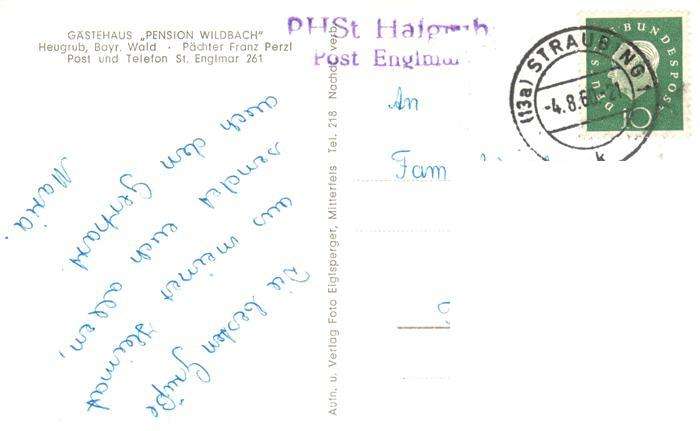 GÄSTEHAUS „PENSION WILDBACH"
Heugrub, Bayr. Wald · Pächter Franz Perzl
Post und Telefon St. Englmar 261
PHSt Haigrub
Post Englmar
(13a) STRAUBING 1
-4.8.60-21
k
DEUTSCHE BUNDESPOST
10
An
Fam
Die besten Grüße
aus meiner Heimat
sendet euch allen,
auch den Gerhard
Maria.
Aufn. u. Verlag Foto Eiglsperger, Mitterfels Tel. 218 Nachdr. verb.